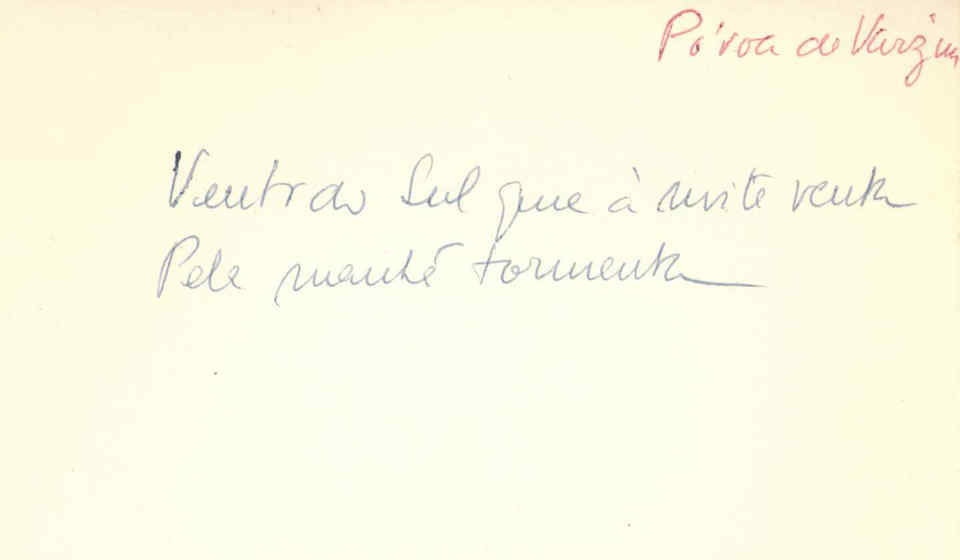 Póvoa de Varzim
Vento do Sul que à noite venta
Pela manhã tormenta